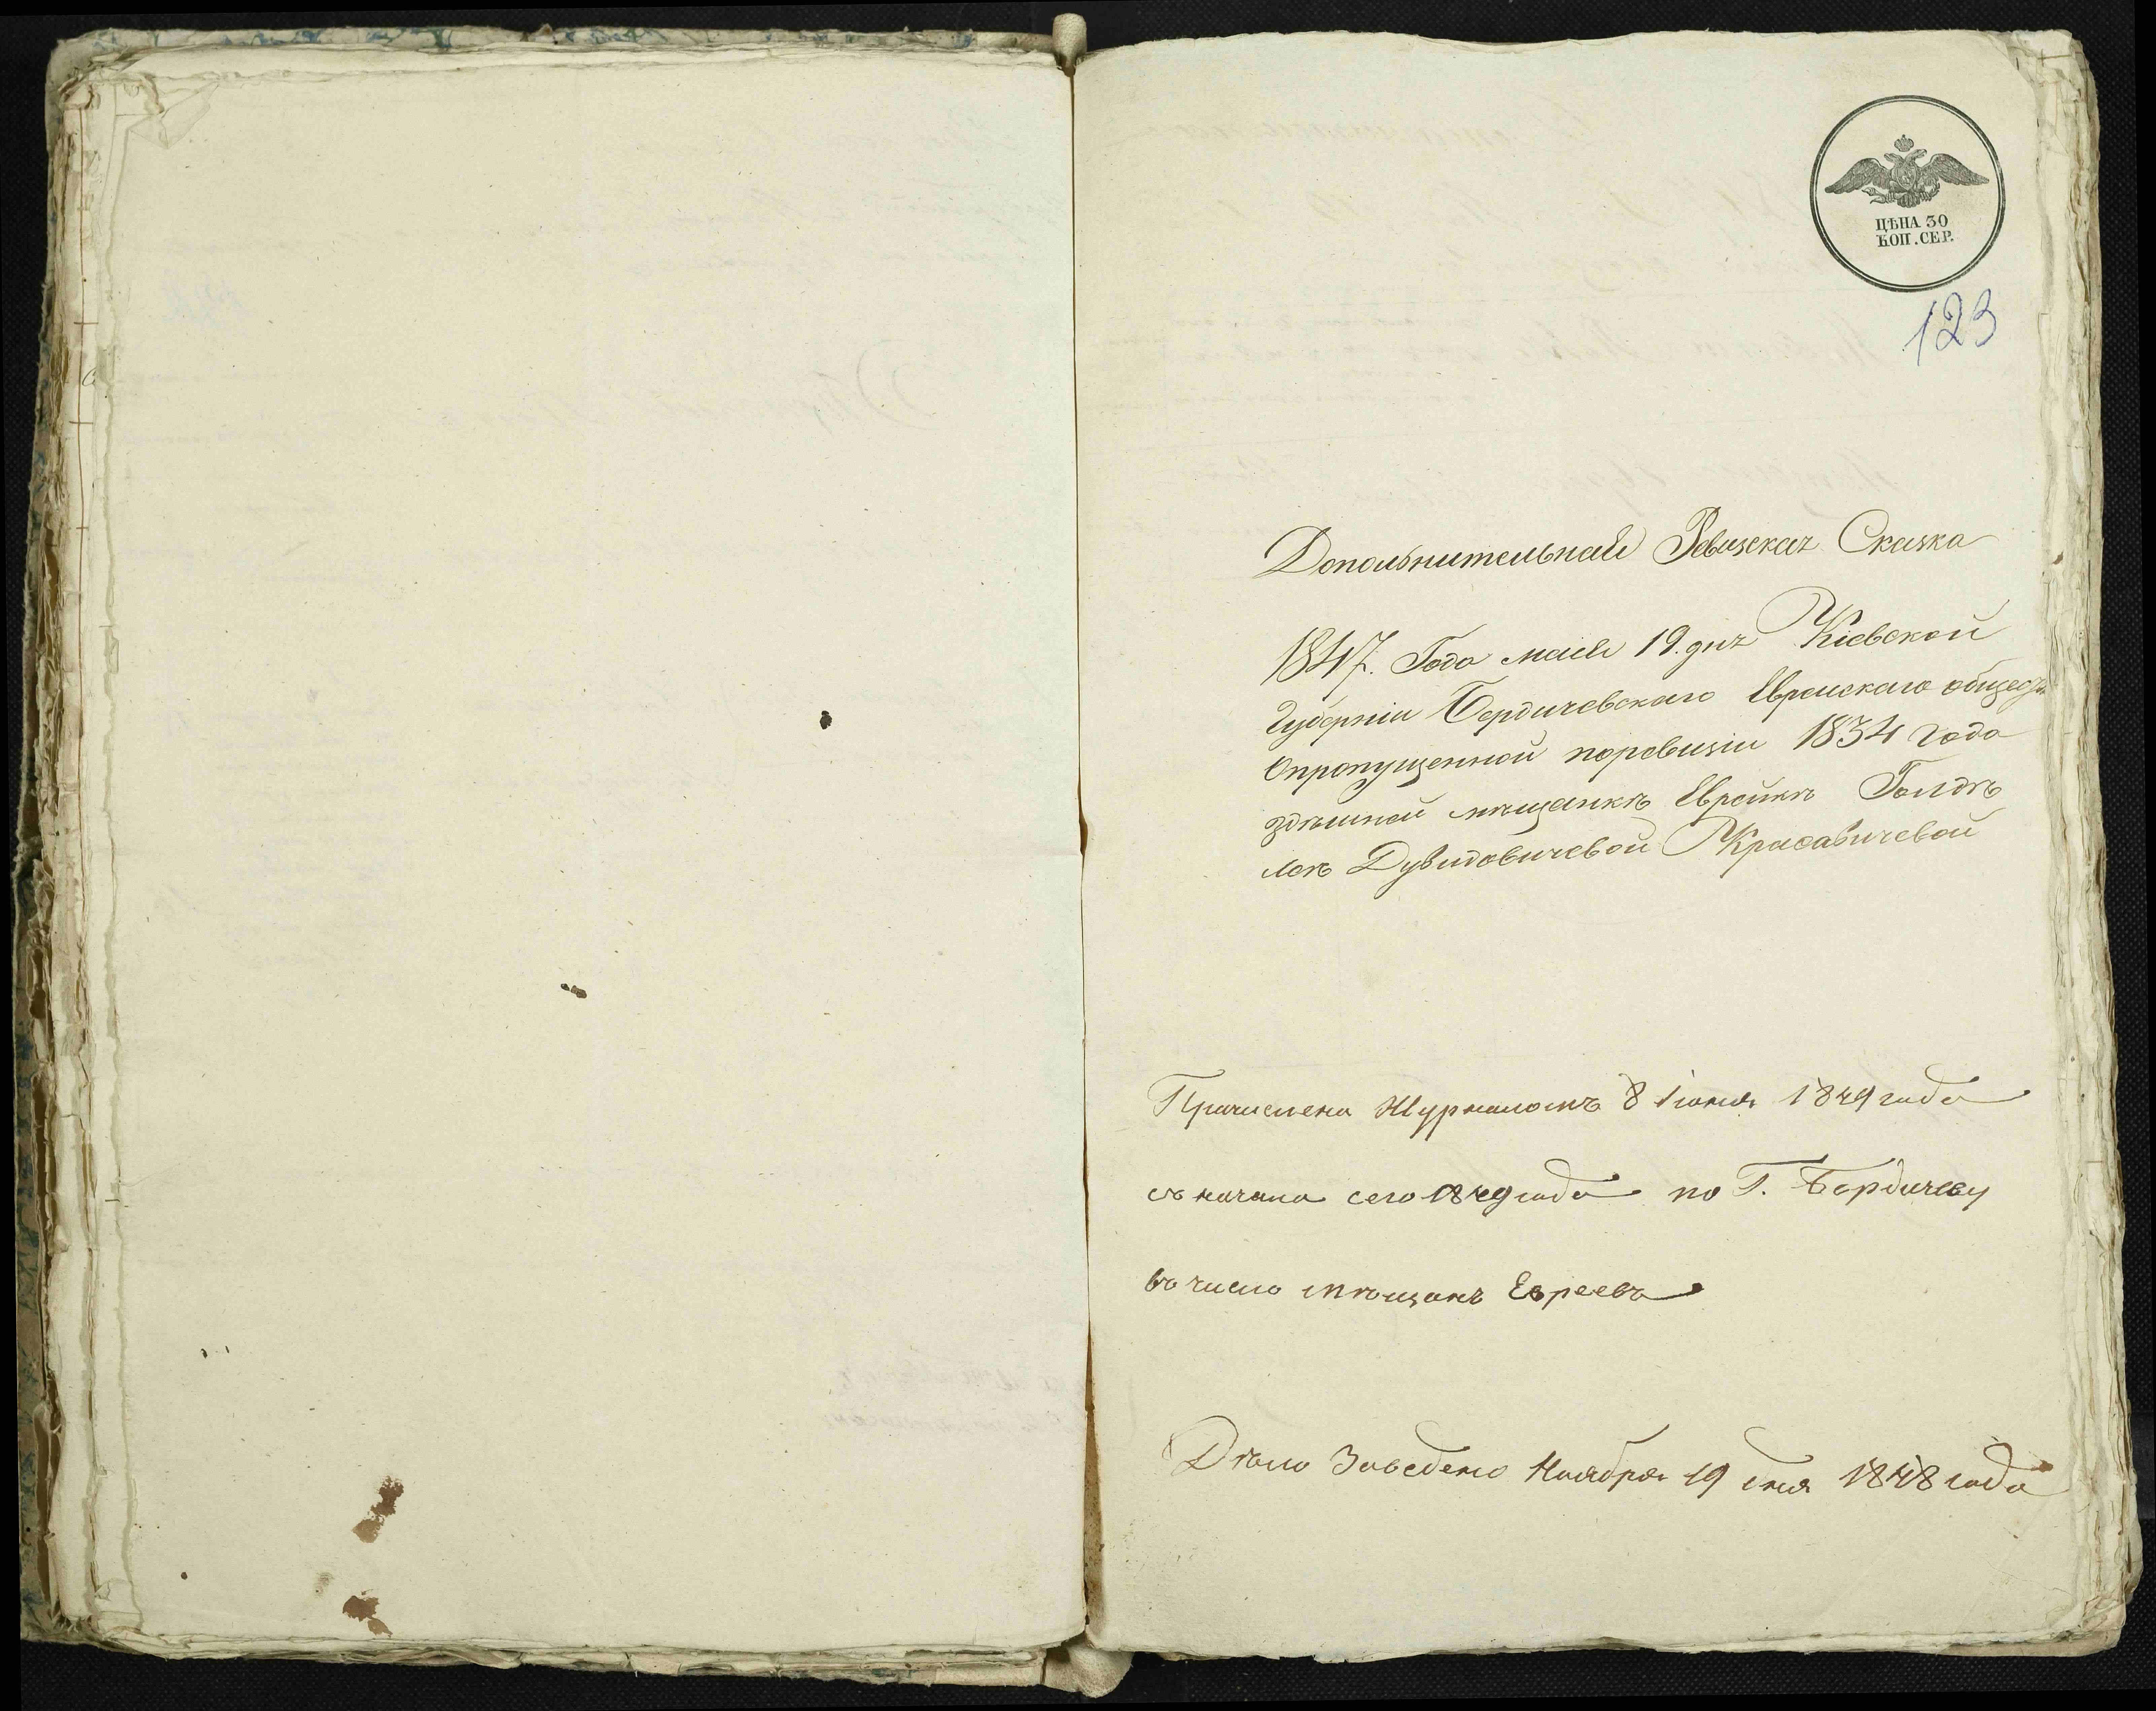 ЦѢНА 30
КОП. СЕР.
123
Дополнительная Ревизская Сказка
1847. Года мая 19. дня Кіевской
Губерніи Бердичевскаго Еврейскаго обществ
Опропущенной поревизіи 1834 года
здѣшной мѣщанкѣ Еврейкѣ Голдѣ
Дувидовичевой Красавичевой
Причислена Журналомъ 8 Іюня 1849 года
съ начала сего 1849 года по Г. Бердичеву
въ число мѣщанъ Евреевъ
Дѣло Заведено Ноября 19 дня 1848 года